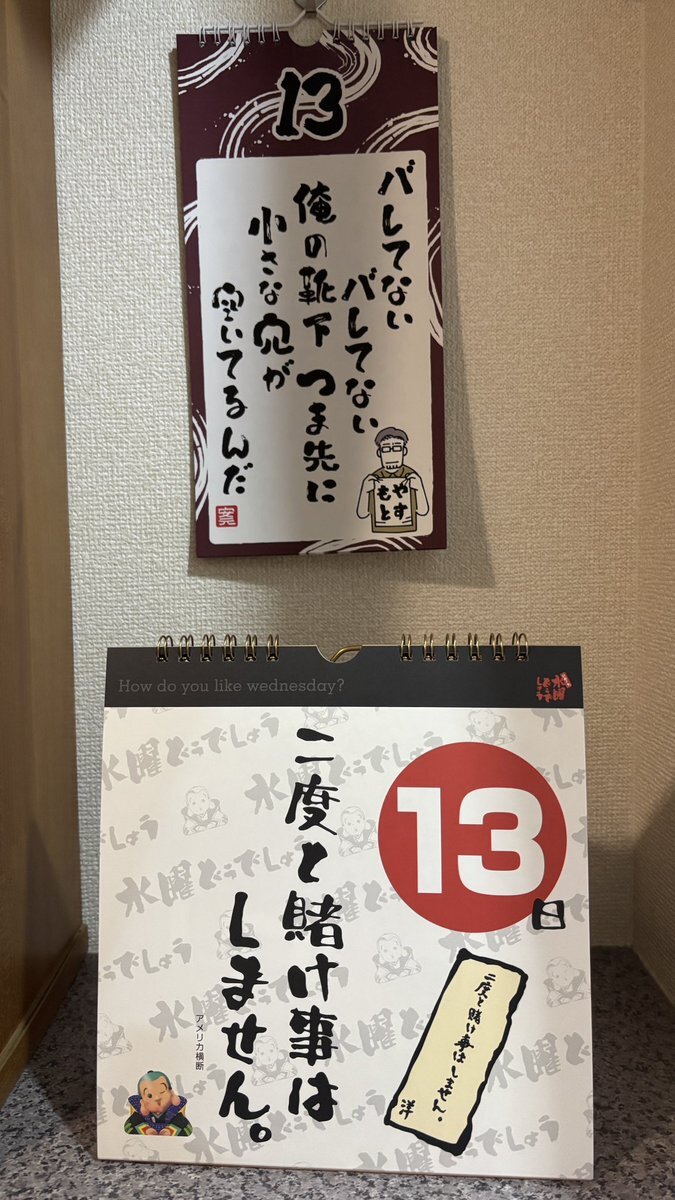 13
バレてない
バレてない
俺の靴下 つま先に
小さな穴が
空いてるんだ
やす
もと
安元
How do you like wednesday?
水曜
どうで
しょう
13
日
二度と賭け事は
しません。
アメリカ横断
二度と賭け事はしません。
洋
水曜どうでしょう